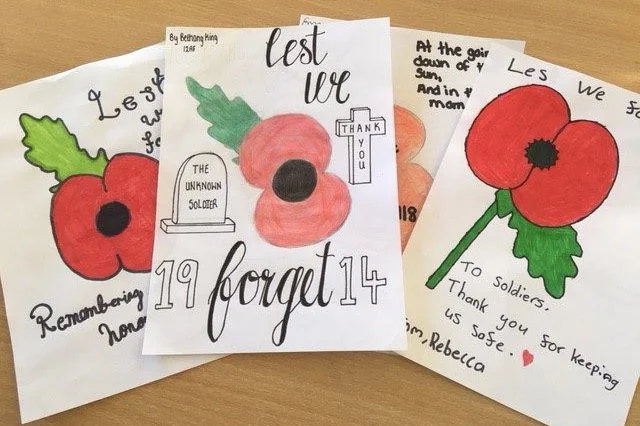 Remembering
By Bethany King
12AF
lest
we
THANK
Y
O
U
THE
UNKNOWN
SOLDIER
19 forget 14
At the
down of
Sun,
And in
Les We
To Soldiers,
Thank you for keeping
us safe.
Rebecca